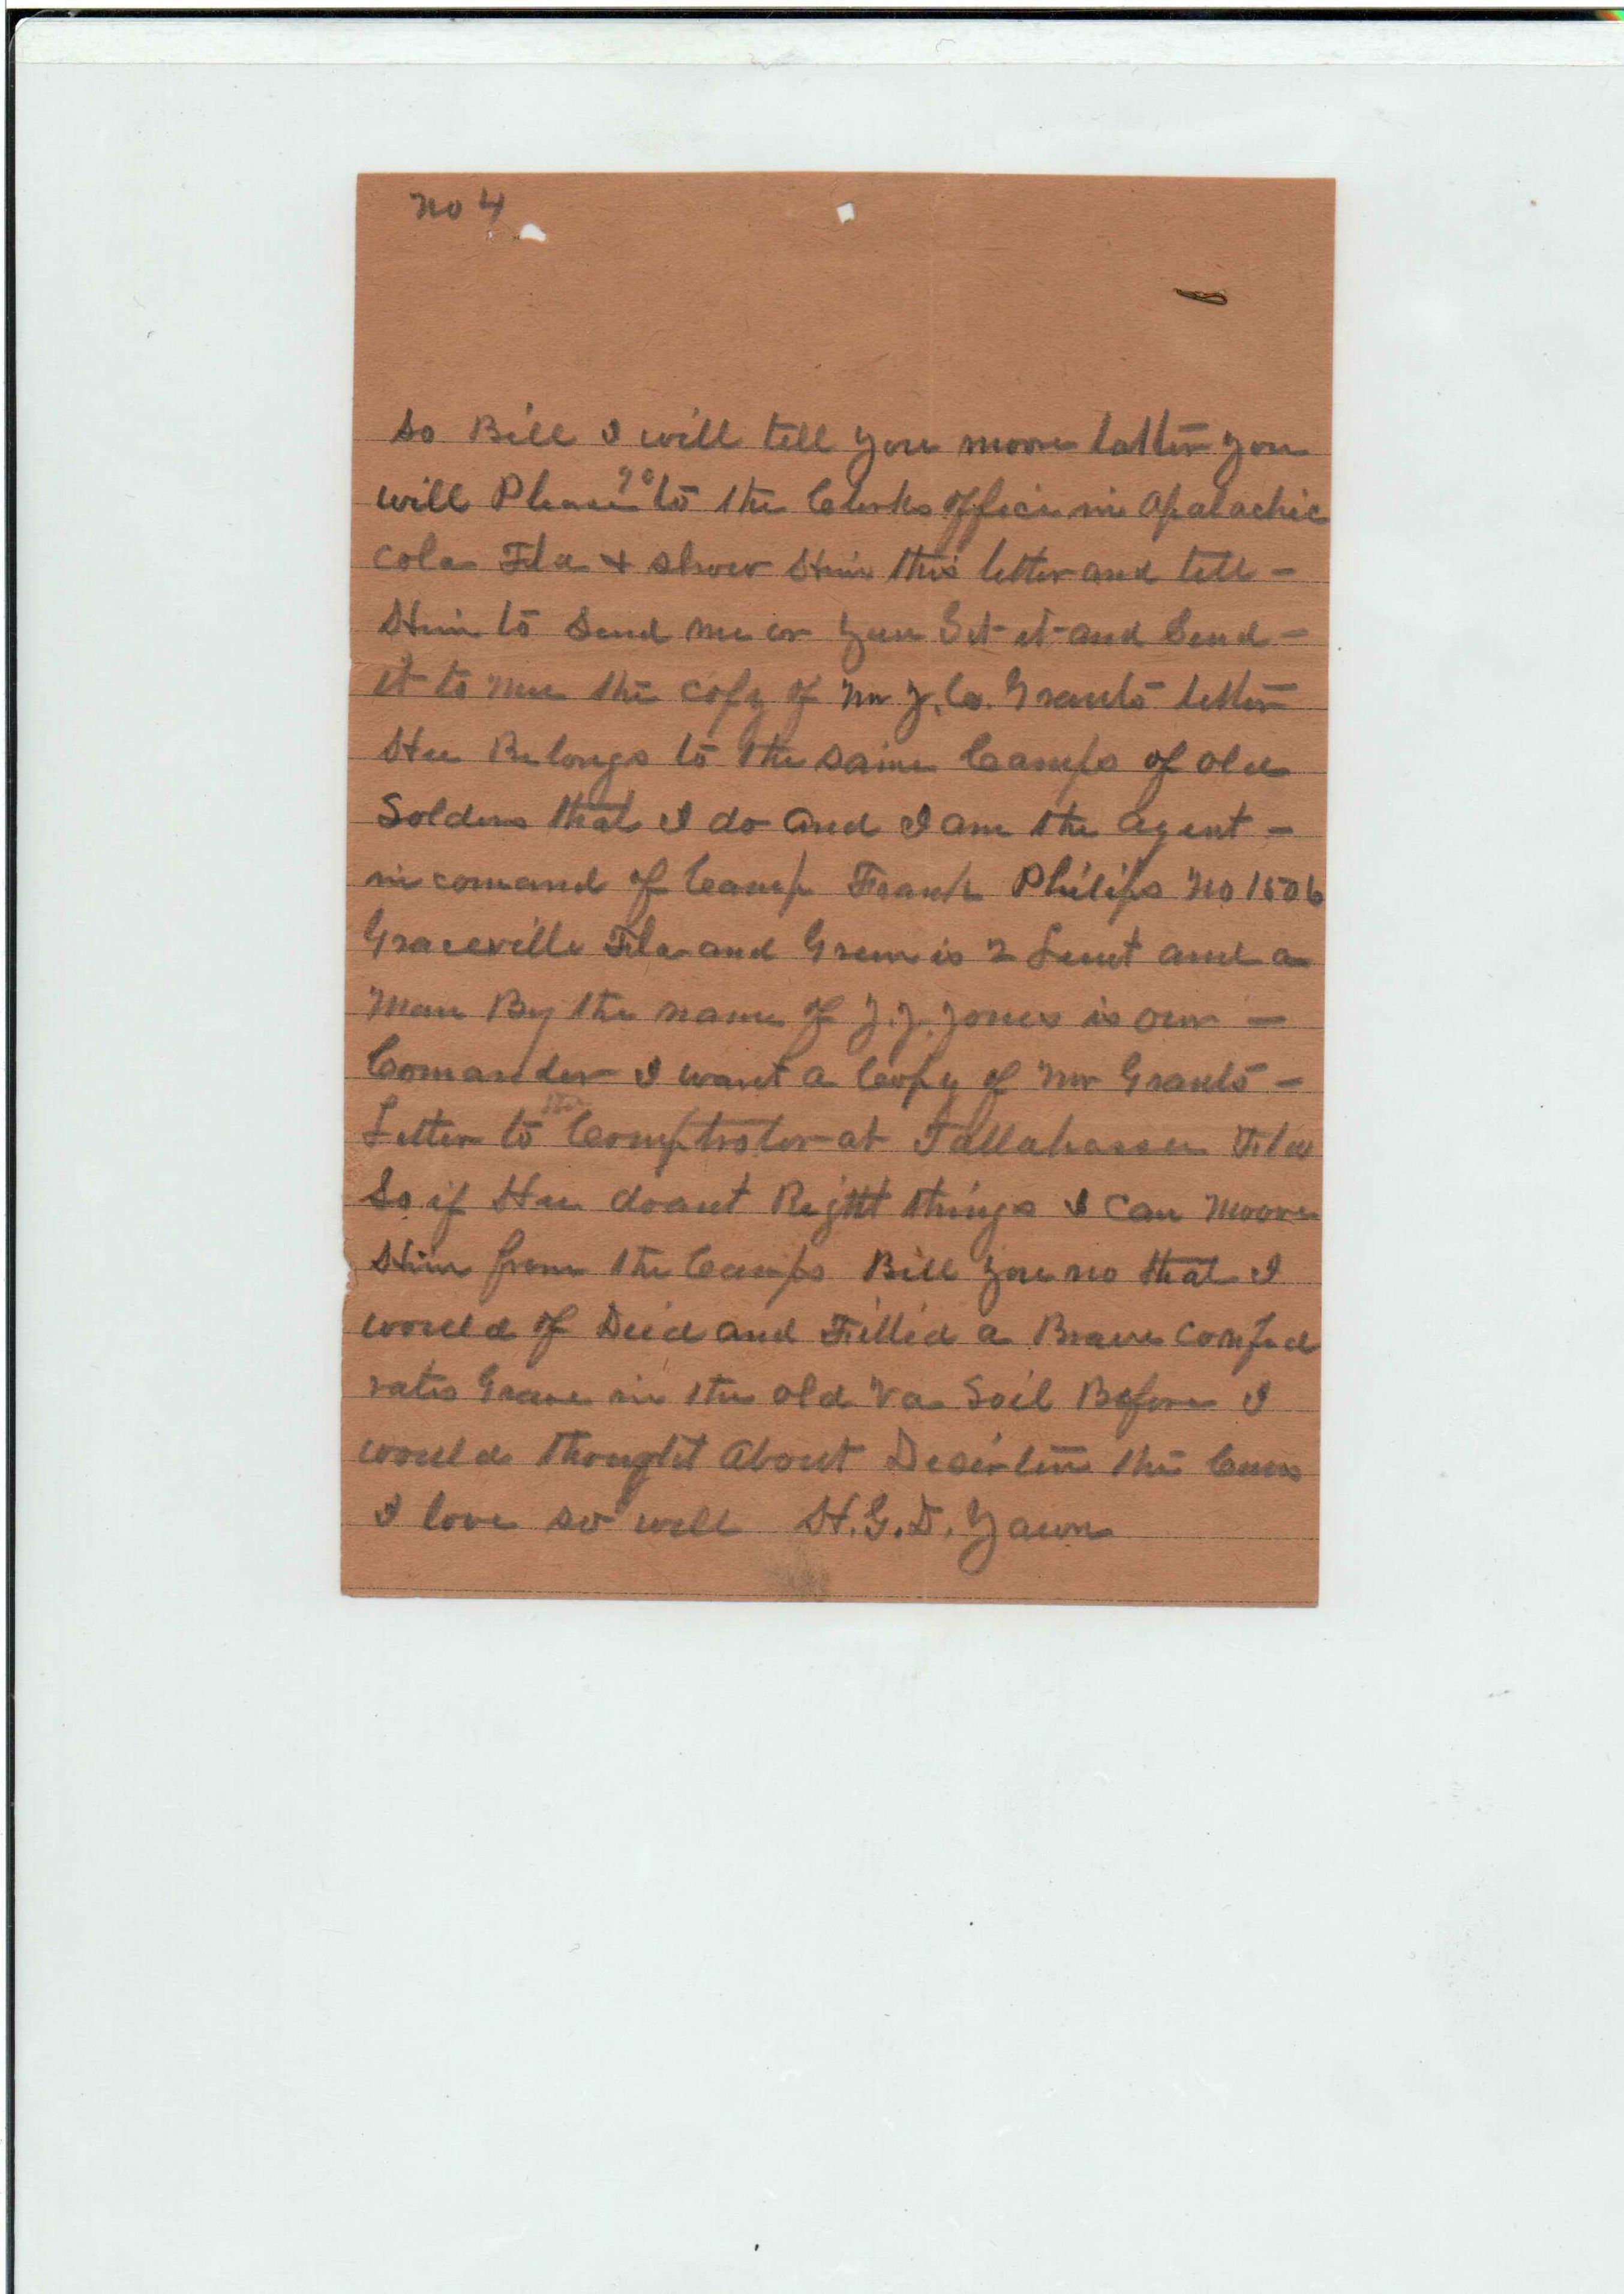 No 4
So Bill I will tell you moore latter you
will Please go to the Clerks office in Apalachic
cola Fla & show Him this letter and tell -
Him to Send me or you Get it and Send -
it to mee the copy of Mr J. Co. Grants letter
Hee Belongs to the same Camps of old
Solders that I do and I am the agent -
in comand of Camp Frank Philips No 1506
Graceville Fla and is 2 Leut and a
Man By the name of J. J. Jones is our -
Comander I want a Copy of Mr Grants -
Letter to the Comptroler at Tallahassee Fla
So if Hee doant Right things I can moove
Him from the Camps Bill you no that I
would of Died and Filled a Brave confed
rates Grave in the old Va Soil Before I
would thought About Desertin the Caus
I love so well H. G. D. Yawn